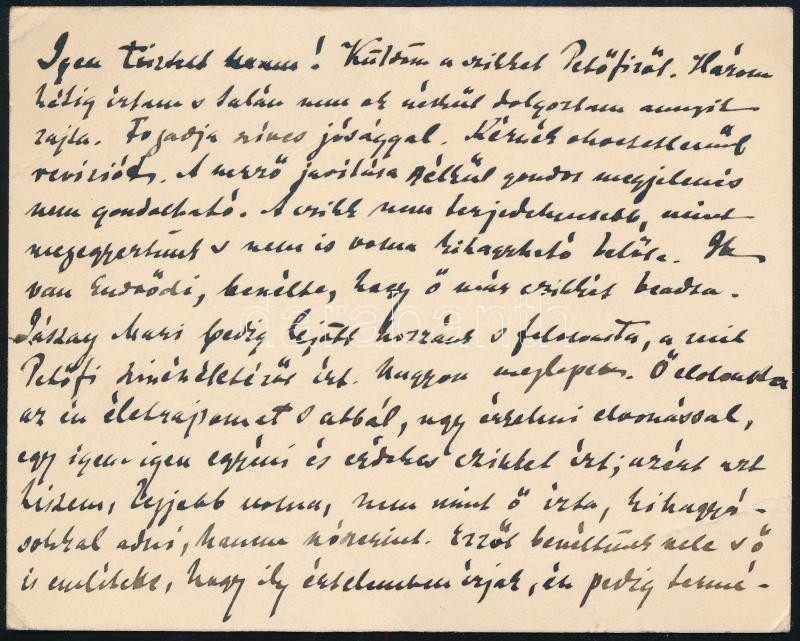 Igen tisztelt uram! Küldöm a czikket Petőfiről. Három
hétig írtam s talán nem ok nélkül dolgoztam annyit
rajta. Fogadja szives jósággal. Kérnék okvetetlenül
revisiót. A szerző javítása nélkül gondos megjelenés
nem gondolható. A czikk nem terjedelmesebb, mint
megegyeztünk s nem is volna kihagyható belőle. Itt
van Endrődi, beszélte, hogy ő már czikkét beadta.
Jászay Mari pedig lejött hozzánk s felolvasta, a mit
Petőfi szinészéletéről írt. Nagyon meglepett. Ő elolvasta
az én életrajzomat s abból, ugy érzelmi elvonással,
egy igen-igen egyéni és érdekes czikket írt; azért azt
hiszem, legjobb volna, nem mint ő írta, kihagyá-
sokkal adni, hanem szószerint. Erről beszéltünk vele s ő
is említette, hogy ily értelemben írjak, én pedig termé-
darabanth